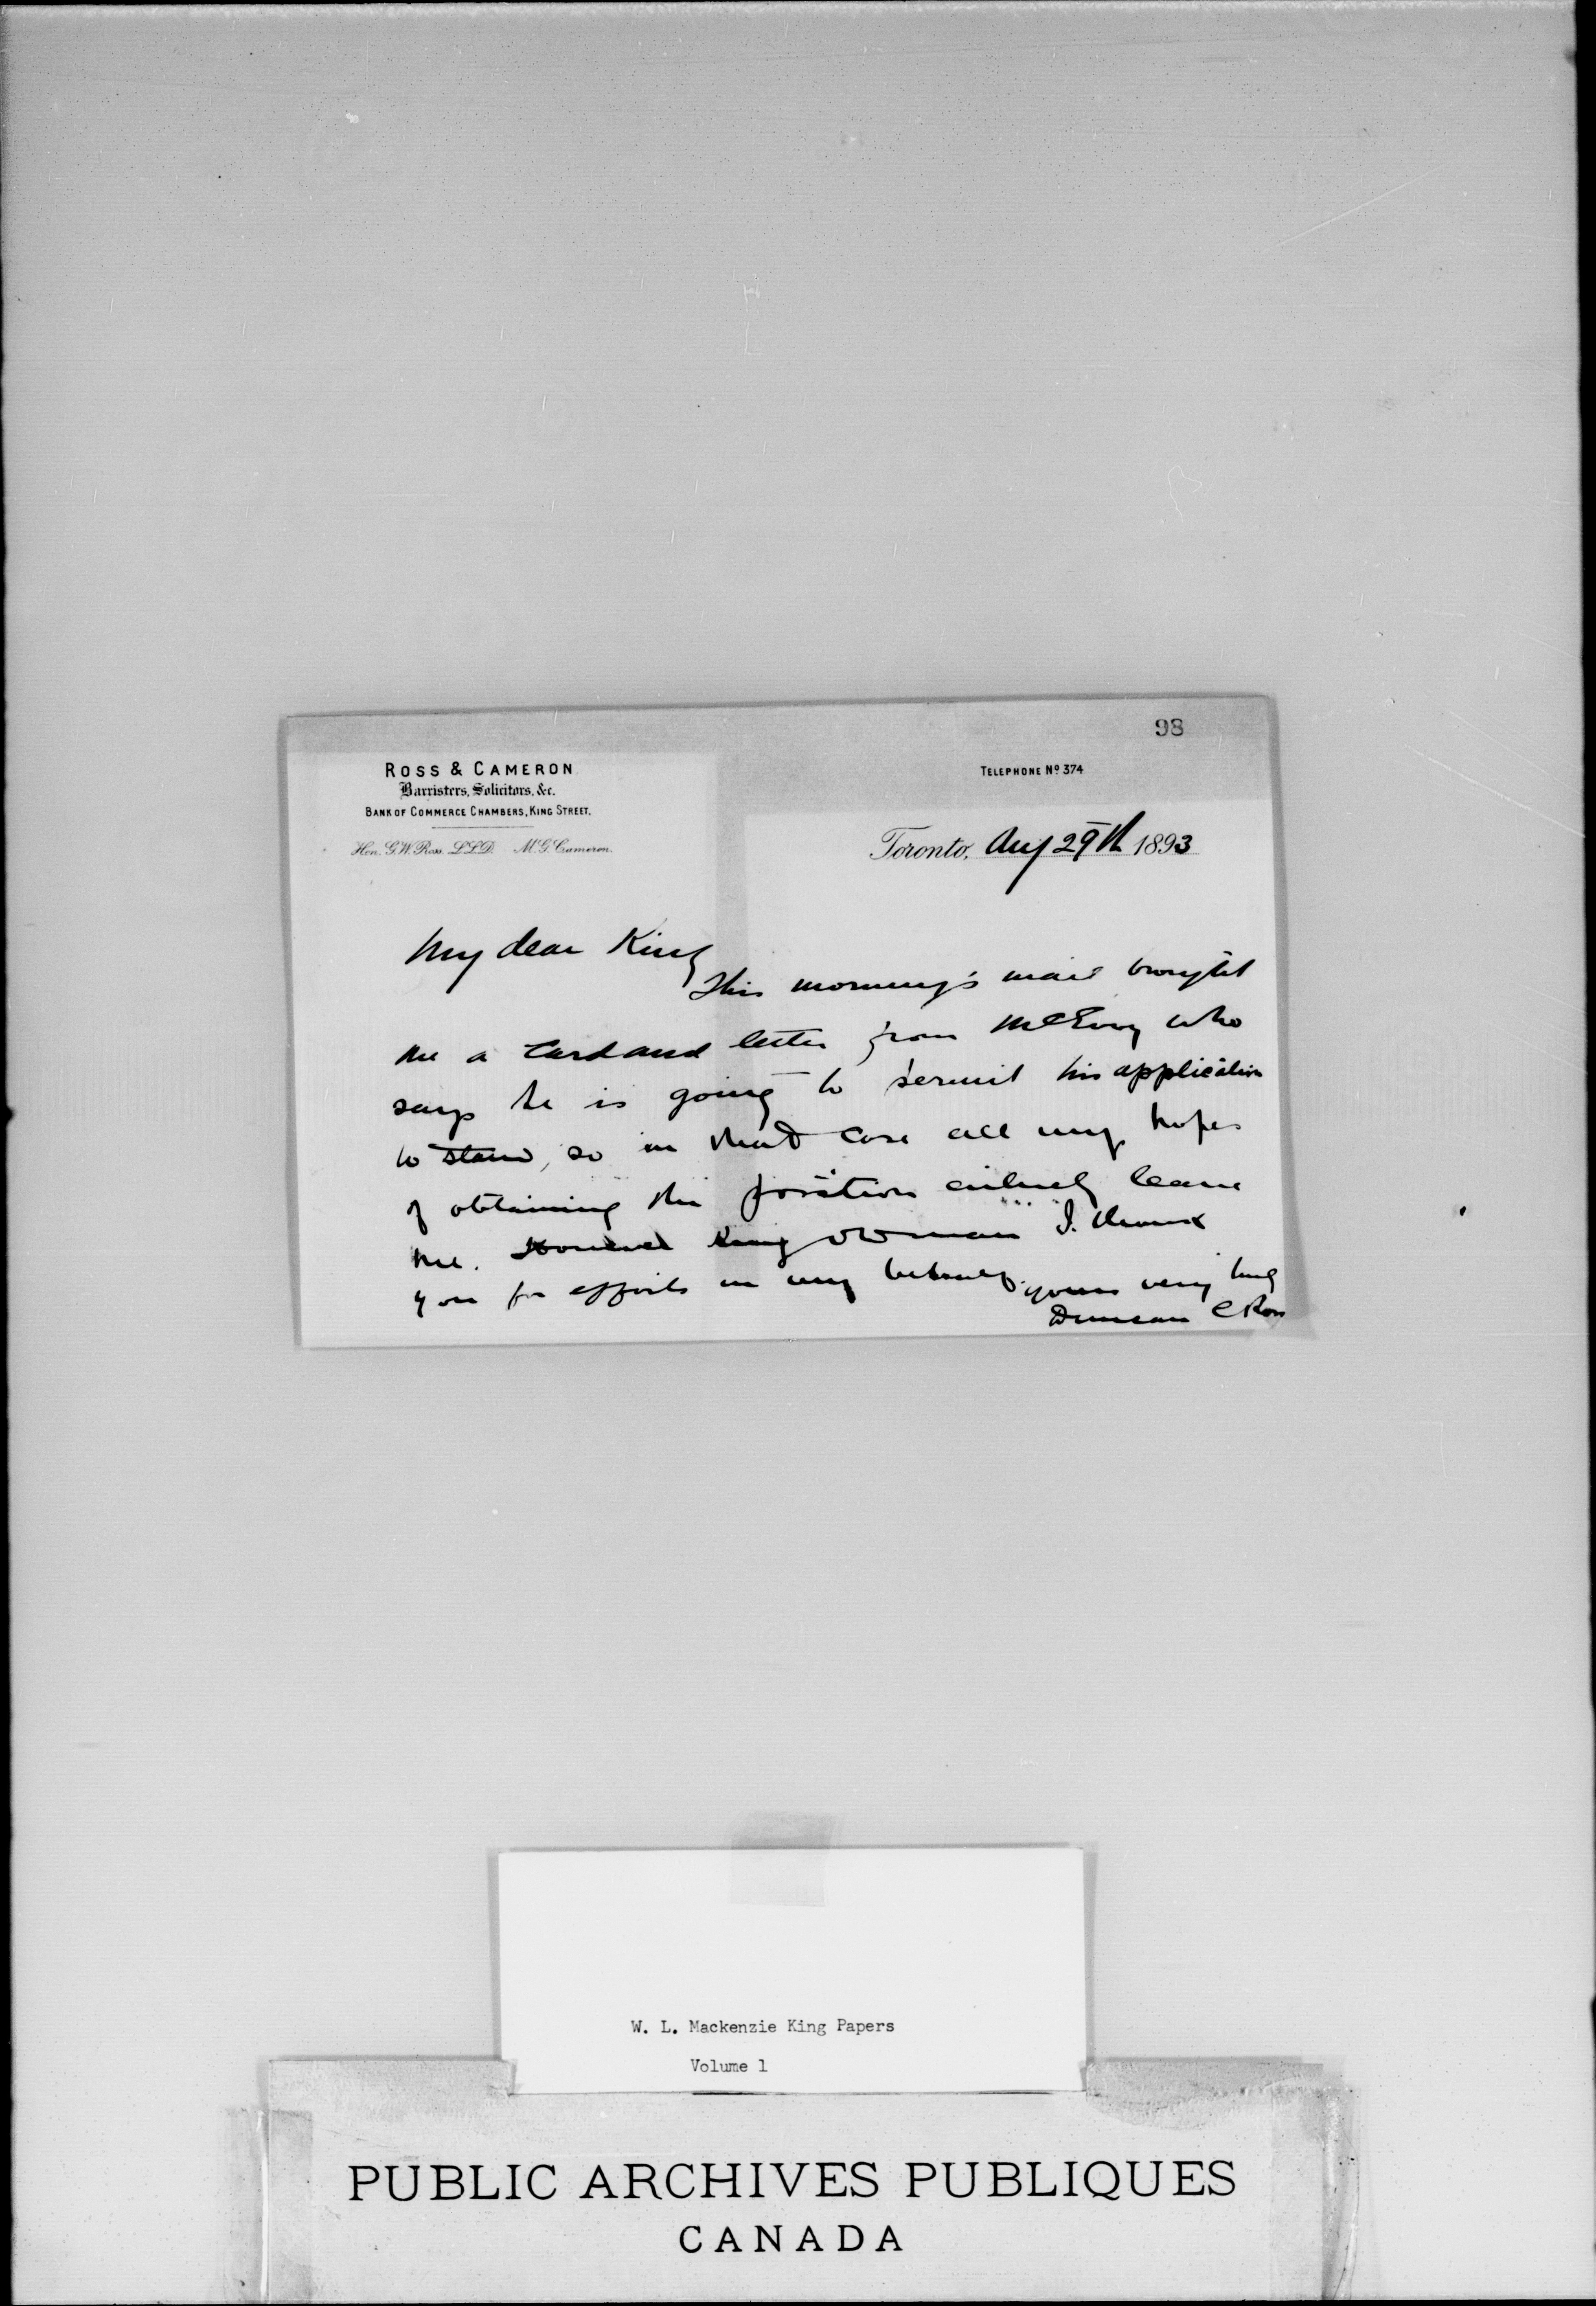 98
ROSS & CAMERON
Barristers, Solicitors, &c.
BANK OF COMMERCE CHAMBERS, KING STREET.
Hon. G.W. Ross. L.L.D. M.G. Cameron.
TELEPHONE No 374
Toronto, Aug 29th 1893
My dear King
This morning's mail brought
me a card and letter from McEvoy who
says he is going to permit his application
to stand, so in that case all my hopes
of obtaining the position entirely leave
me. However King old man I thank
you for efforts in my behalf. yours very truly
Duncan C Ross
W. L. Mackenzie King Papers
Volume 1
PUBLIC ARCHIVES PUBLIQUES
CANADA